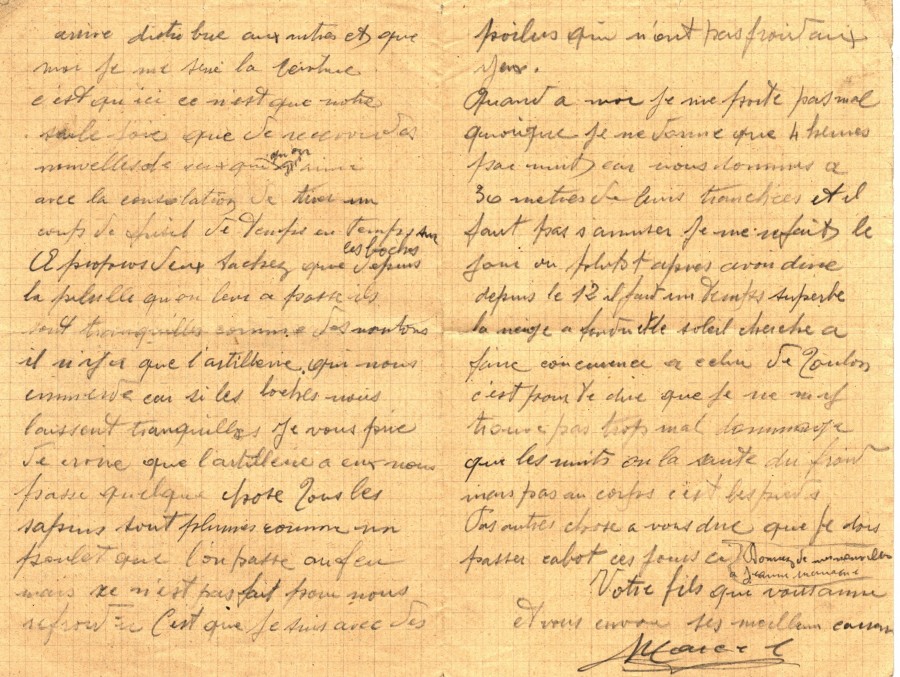 arrive distribue aux autres et que
moi je me sere la ceinture
c'est qu ici ce n'est que notre
seule joie que de recevoir des
nouvelles de ceux qu'on aime
avec la consolation de tirer un
coup de fusil de temps en temps sur
les boches
A propos d'eux sachez que depuis
la pilulle qu on leur a passe ils
sont tranquilles comme des moutons
il n'y a que l'artillerie qui nous
emmerde car si les boches nous
laissent tranquilles je vous prie
de croire que l'artillerie a eux nous
passe quelque chose Tous les
sapins sont plumes comme un
poulet que l'on passe au feu
mais ce n'est pas fait pour nous
refroidir C'est que je suis avec des
poilus qui n'ont pas froid aux
yeux.
Quand a moi je me porte pas mal
quoique je ne dorme que 4 heures
par nuit car nous sommes a
30 metres de leurs tranchees et il
faut pas s'amuser je me refait le
jour ou plutot apres avoir dine
depuis le 12 il fait un temps superbe
la neige a fondu et le soleil cherche a
faire concurence a celui de Toulon
c'est pour te dire que je ne m'y
trouve pas trop mal dommage
que les nuits on la sante du froid
mais pas au corps c'est les pieds
Pas autres chose a vous dire que je dois
passer cabot ces jours ci Donnez de mes nouvelles
a Jeanne
Votre fils qui vous aime
et vous envoie ses meilleurs
Marcel